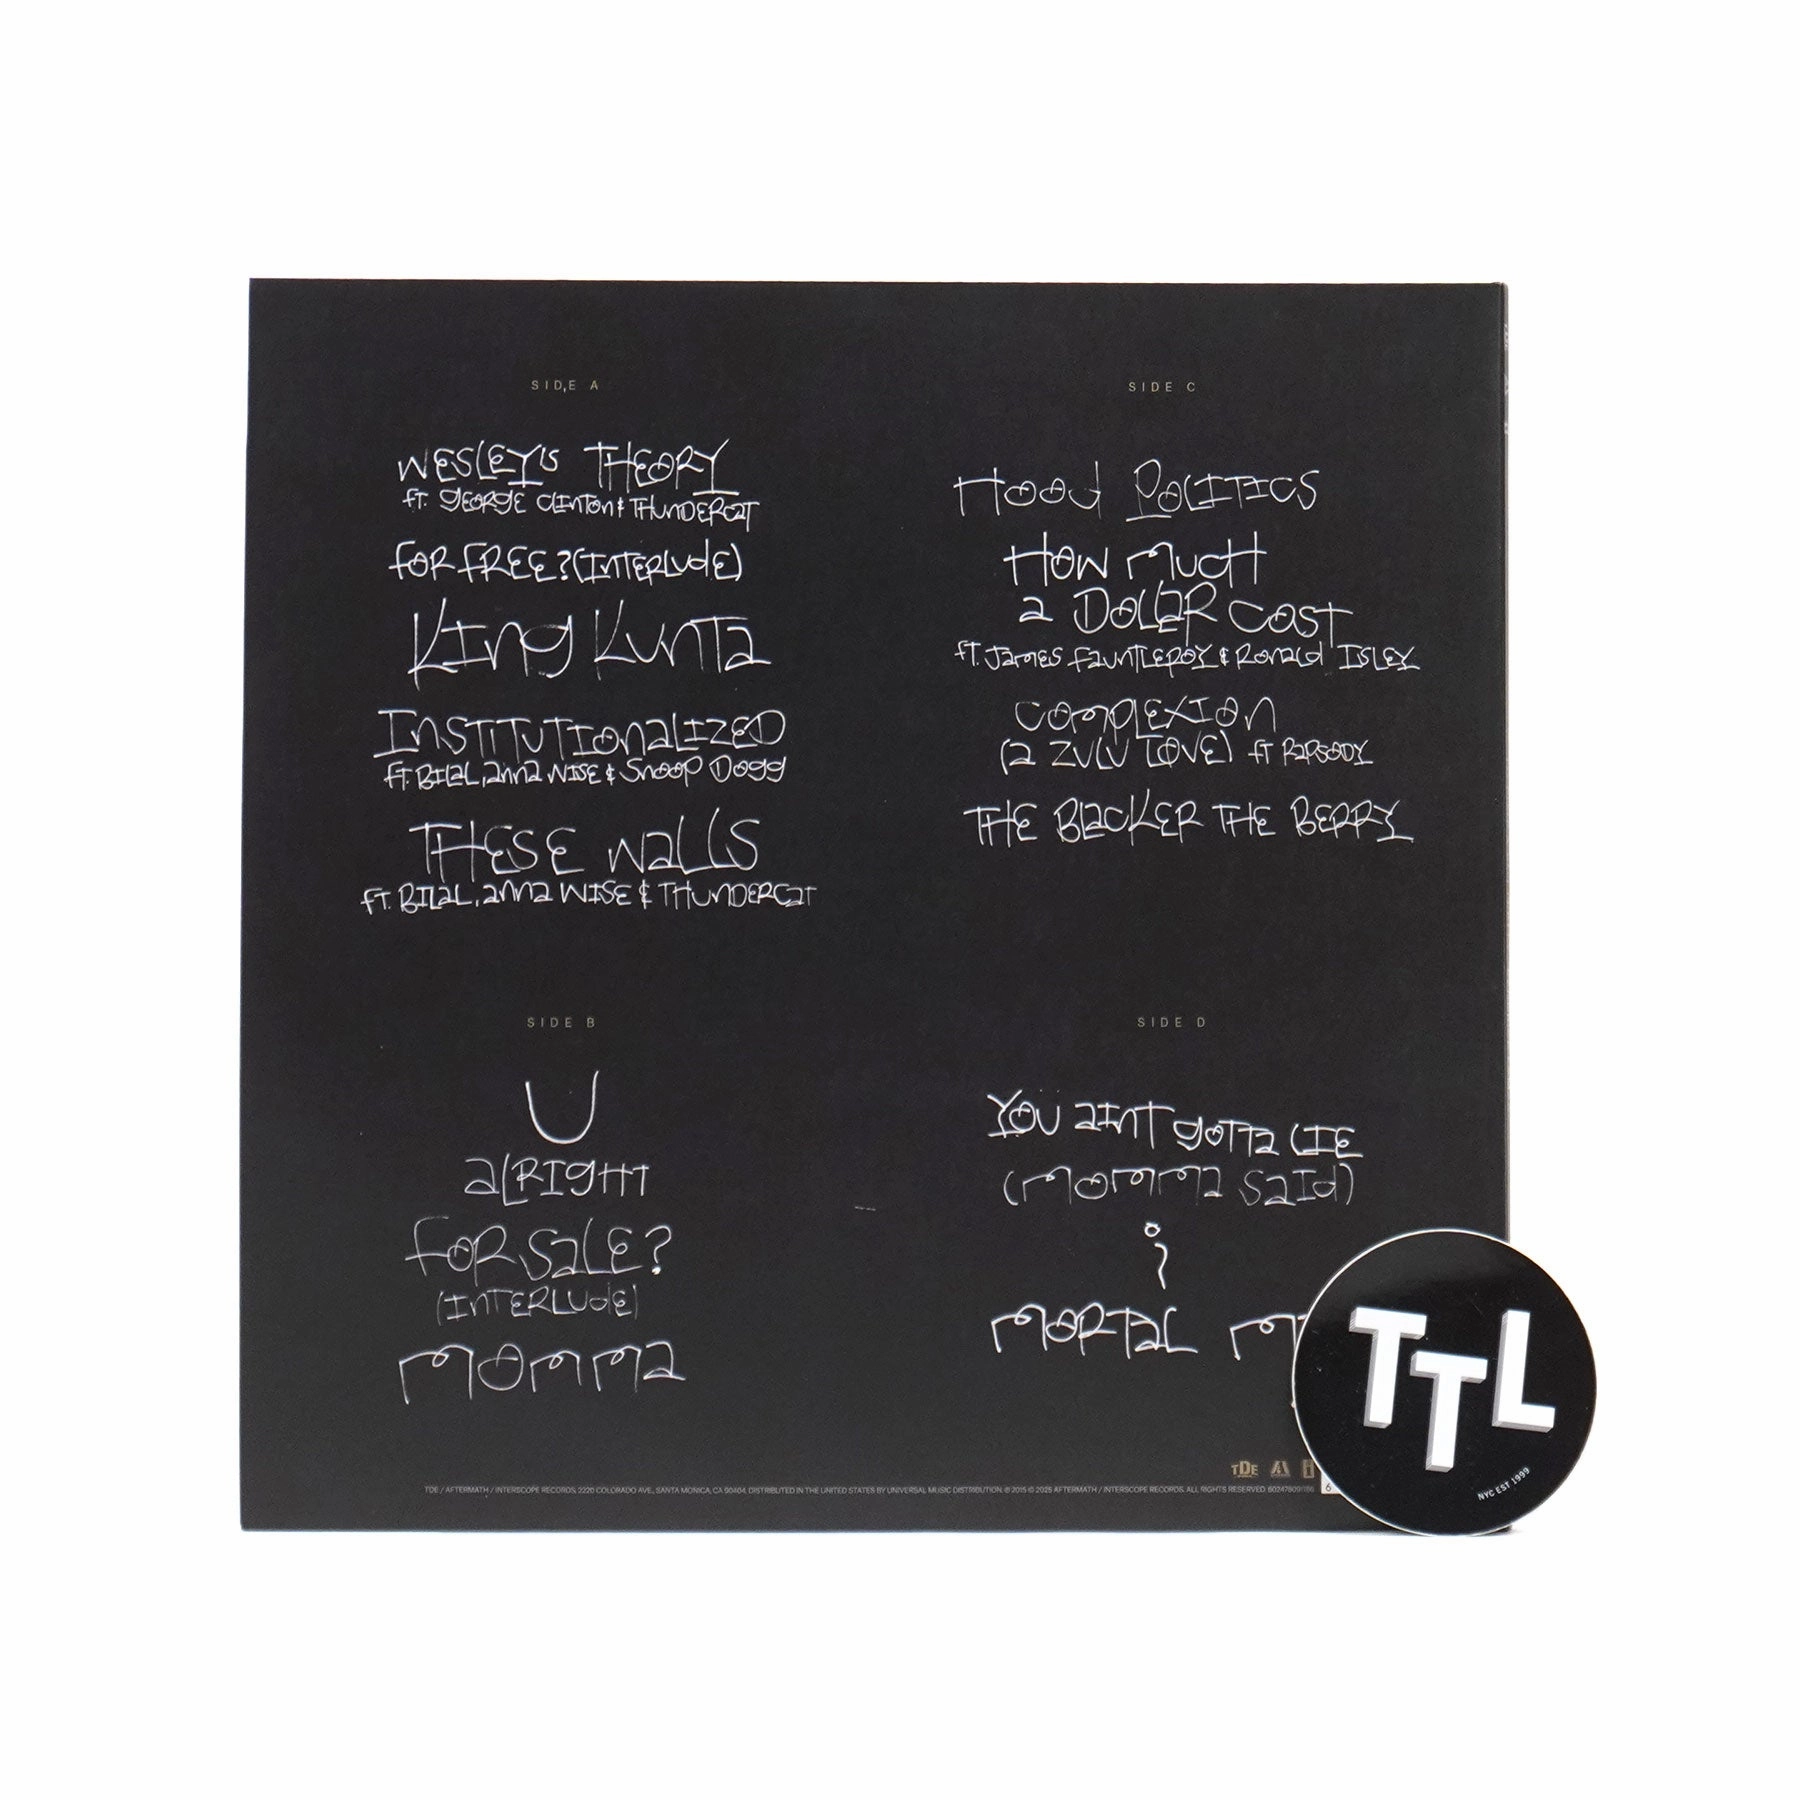 SIDE A
WESLEY'S THEORY
FT. GEORGE CLINTON & THUNDERCAT
FOR FREE? (INTERLUDE)
KING KUNTA
INSTITUTIONALIZED
FT. BILAL, ANNA WISE & SNOOP DOGG
THESE WALLS
FT. BILAL, ANNA WISE & THUNDERCAT
SIDE B
U
ALRIGHT
FOR SALE?
(INTERLUDE)
MOMMA
SIDE C
HOOD POLITICS
HOW MUCH
A DOLLAR COST
FT. JAMES FAUNTLEROY & RONALD ISLEY
COMPLEXION
(A ZULU LOVE) FT RAPSODY
THE BLACKER THE BERRY
SIDE D
YOU AINT GOTTA LIE
(MOMMA SAID)
i
MORTAL M
TDE
TDE / AFTERMATH / INTERSCOPE RECORDS, 2220 COLORADO AVE., SANTA MONICA, CA 90404. DISTRIBUTED IN THE UNITED STATES BY UNIVERSAL MUSIC DISTRIBUTION. ℗ 2015 © 2025 AFTERMATH / INTERSCOPE RECORDS. ALL RIGHTS RESERVED.
6
TTL
NYC EST 1999